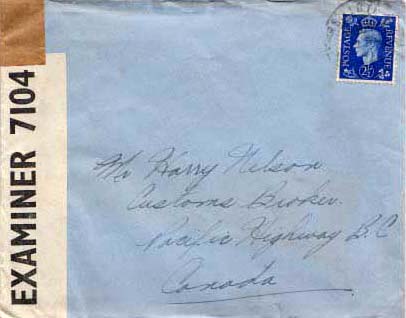 EXAMINER 7104
POSTAGE REVENUE
2½D
Mr Harry Nelson
Customs Broker.
Pacific Highway B.C
Canada